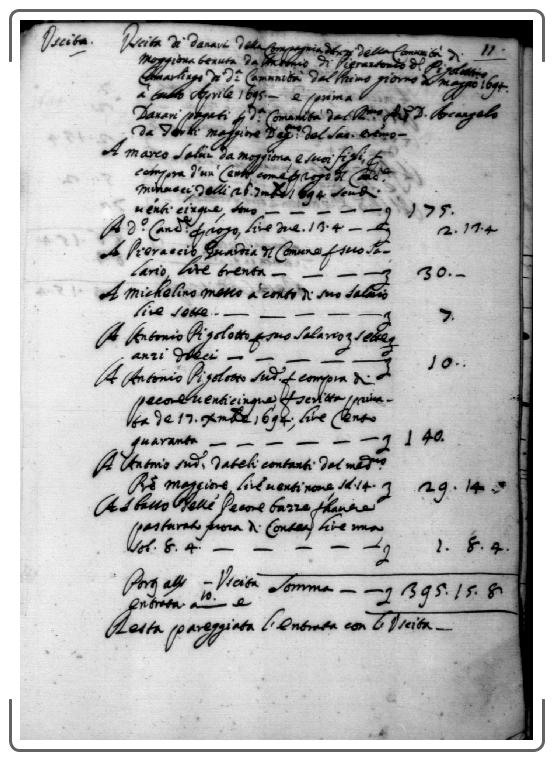 Uscita. Uscita di danari della Compagnia di della Comunità di 11.
Moggiona tenuta da Antonio di Pierantonio d. Pigolotti
Camarlingo di d.a Comunità dal Primo giorno di Maggio 1694.
à tutto Aprile 1695 — e prima
Danari pagati p d.a Comunità dal P. D. Arcangelo
da maggiore del Sac. eremo —
A Marco Salvi da Moggiona e suoi figli, p
compra d'un Censo come p rogo di
Minucci delli 26 1694 scudi
venti cinque, sono — — — 175.
A d.o p rogo, lire due. 13.4 — 2. 13. 4
A Pieraccio Guardia del Comune p suo Sa-
lario, lire trenta — — — 30. —
A Michelino Messo a conto di suo Salario
lire sette — — — — 7.
A Antonio Pigolotto p suo Salario
anzi dieci — — — — 10.
A Antonio Pigolotto sud. p compra di
pecore venticinque p scritta priva-
ta de 17. 1694, lire Cento
quaranta — — — — — — 140.
A Antonio sud. dateli contanti dal med.mo
Pre maggiore, lire ventinove sd. 14. 29. 14 —
A Pecore
pasturato fuora di lire una
sol. 8. 4. — — — — — 1. 8. 4.
— Uscita Somma — — 395. 15. 8
entrata a 10. e
Resta pareggiata l'entrata con l'Uscita —